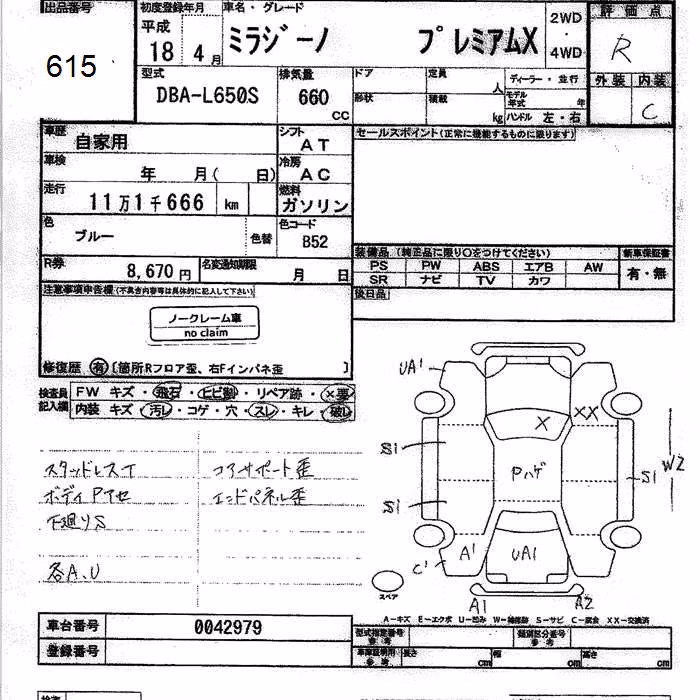 出品番号
615
初度登録年月
平成
18 4月
車名・グレード
ミラジーノ プレミアムX
2WD
・
4WD
評価点
R
外装 内装
C
型式
DBA-L650S
排気量
660
CC
ドア
定員
人
形状
積載
kg
ディーラー・並行
モデル年式 年
ハンドル 左・右
車歴
自家用
シフト
AT
車検
年 月( 日)
冷房
AC
走行
11万1千666 km
燃料
ガソリン
色
ブルー
色替
色コード
B52
R券
8,670円
名変通知期限
月 日
セールスポイント(正常に機能するものに限ります)
装備品 (純正品に限り○をつけてください)
PS PW ABS エアB AW
SR ナビ TV カワ
新車保証書
有・無
後日品
注意事項申告欄(不具合内容等は具体的に記入して下さい)
ノークレーム車
no claim
修復歴 有 [箇所Rフロア歪、右Fインパネ歪 ]
検査員
記入欄
FW キズ・飛石・ヒビ割・リペア跡・×要
内装 キズ・汚レ・コゲ・穴・スレ・キレ・破レ
スタッドレスT
コアサポート歪
ボディPアセ
エンドパネル歪
下廻りS
各A.U
UA1
X
XX
S1
S1
Pハゲ
S1
W2
A1
UA1
C1
A1
A2
スペア
A-キズ E-エクボ U-凹み W-補修跡 S-サビ C-腐食 XX-交換済
車台番号
0042979
登録番号
型式指定番号
参考
類別区分番号
参考
車庫証明用
参考
長さ cm
幅 cm
高さ cm